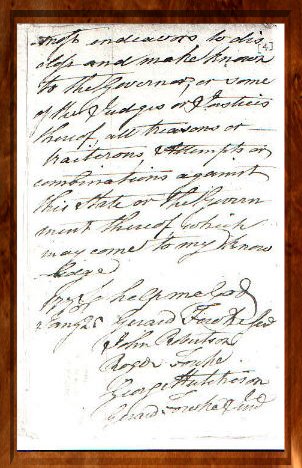 most endeavors to dis
close and make known [4]
to the Governor, or some
of the Judges or Justices
thereof, all treasons or
traiterous, Attempts or
combinations against
this State or the Govern
ment thereof which
may come to my Know
ledge
help me God
Gerard Fowke Sen
John Robertson
Roger Fowke
George Hutcheson
Gerard Fowke Jun